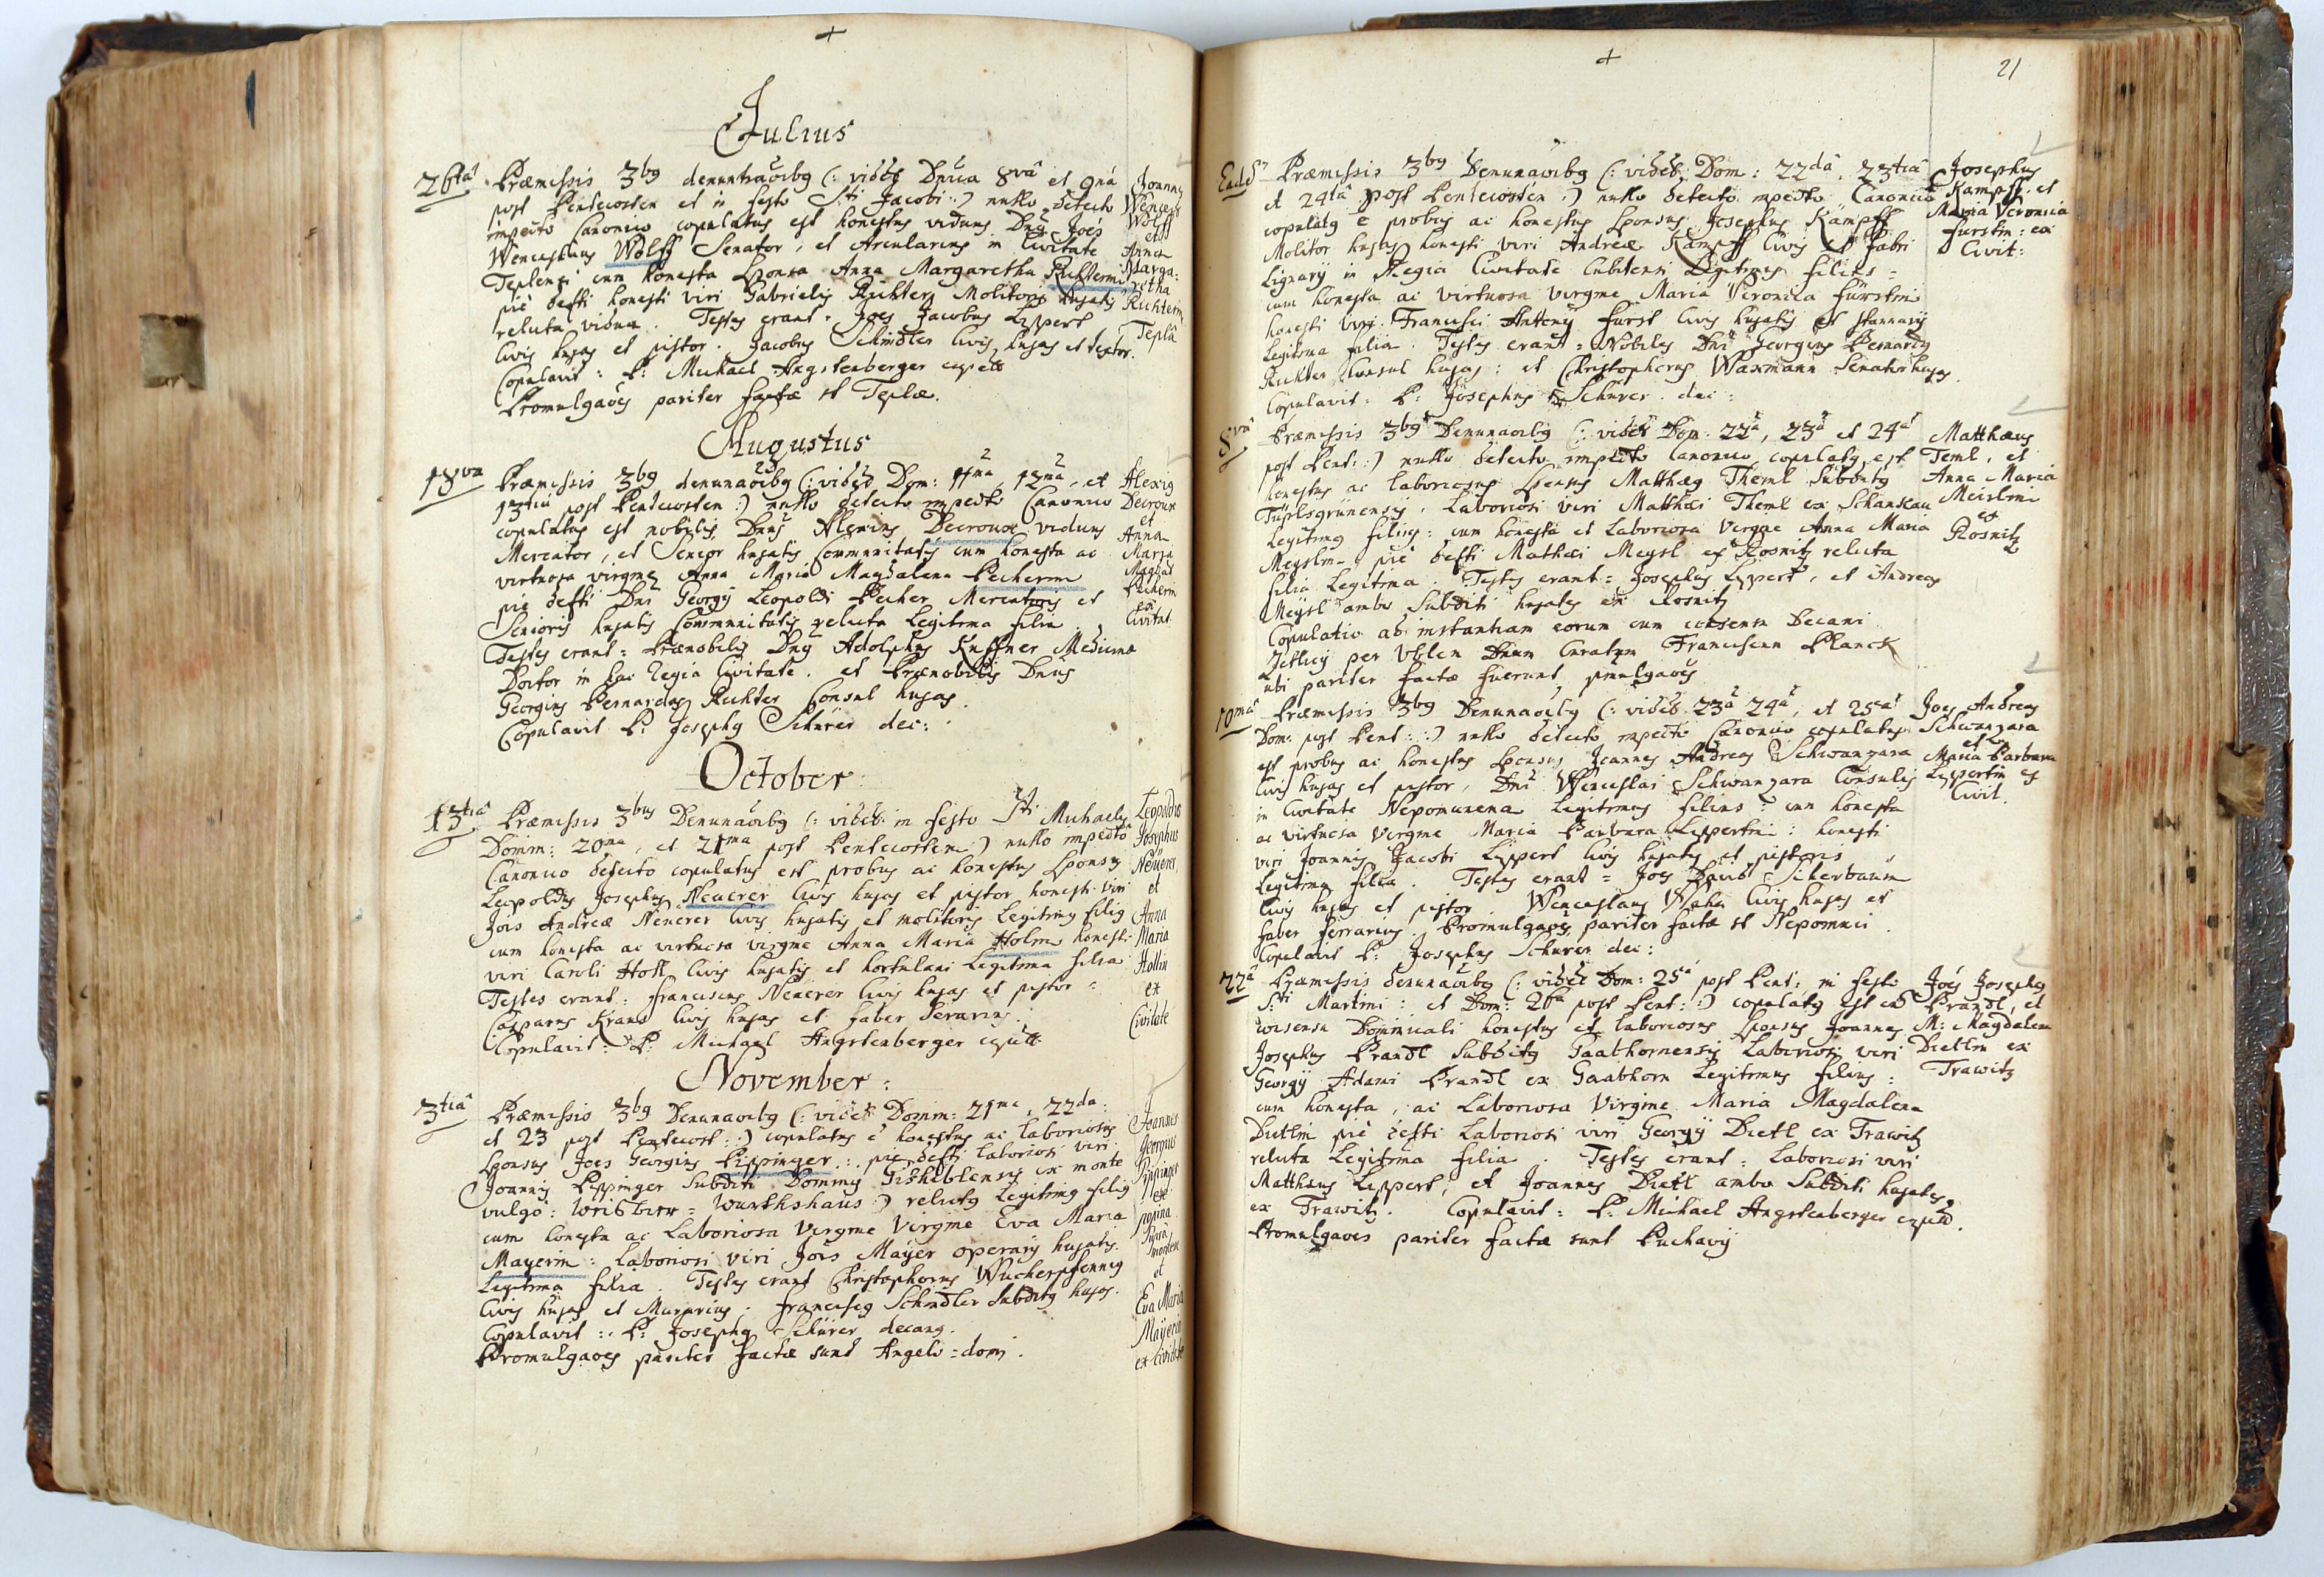 Julius
26ta Præmissis 3bg denuntiaoibg (: videlt Dnica 8va et 9na
post Pentecosten et in festo S:ti Jacobi :) nullo detecto
impedto Canonico copulatus est honestus viduus Dng Jois
Wenceslaus Wolff Senator, et Arcularius in Civitate
Teplensi cum honesta Sponsa Anna Margaretha Richterin
pie defti honesti viri Gabrielis Richter Molitoris hujatis
relicta vidua. Testes erant = Joes Jacobus Lippert
Civis hujas et pistor. Jacobus Schindler Civis hujas et textor.
Copulavit: P: Michael Angstenberger
Promulgaoes pariter factæ st Teplæ.
Joannes
Wencesl
Wolff
et
Anna
Marga:
retha
Richterin
Teplâ
Augustus
18va Præmissis 3bg denunaoibg (: videlt Dom: 11ma, 12ma, et
13tia post Pentecosten :) nullo detecto impedto Canonico
copulatus est nobilis Dnus Alexius Decroux viduus
Mercator, et Senior hujatis Communitatis cum honesta ac
virtuosa virgine Anna Maria Magdalena Pecherin
pie defti Dni Georgij Leopoldi Pecher Mercatoris et
Senioris hujatis Communitatis relicta Legitima filia.
Testes erant = Prænobilis Dng Adolphus Kuffner Medicinæ
Doctor in hac Regia Civitate. et Prænobilis Dnus
Georgius Bernardus Richter Consul hujas.
Copulavit P: Josephg Schürer dec:
Alexig
Decroux
et
Anna
Maria
Magdal
Pecherin
ex
Civitat.
October
13tia Præmissis 3bus Denunaoibg (: videlt: in festo S:ti Michaelis
Domin: 20ma, et 21ma post Pentecosten :) nullo impedto
Canonico detecto copulatus est probus ac honestus Sponsus
Leopoldus Josephus Neuerer Civis hujas et pistor honesti viri
Jois Andreæ Neuerer Civis hujatis et molitoris Legitimg filig
cum honesta ac virtuosa virgine Anna Maria Holin honesti
viri Caroli Holl Civis hujatis et hortulani Legitima filia
Testes erant: Franciscus Neuerer Civis hujas et pistor =
Casparus Kraus Civis hujas et faber serarius.
Copulavit: P: Michael Angstenberger
Leopoldus
Josephus
Neuerer,
et
Anna
Maria
Hollin
ex
Civitate
November:
3tia Præmissis 3bg Denunaoibg (: videlt Domin: 21ma, 22da
et 23 post Pentecost: :) copulatus e honestus ac laboriosus
Sponsus Joes Georgius Pippinger: pie defti laboriosi viri
Joannis Pippinger Subditi Dominij Gishiblensis ex monte
vulgo: = Wurthshaus :) relictg Legitimg filig
cum honesta ac Laboriosa Virgine Virgine Eva Maria
Mayerin: laboriosi viri Jois Mayer operarij hujatis.
Legitima filia. Testes erant Christophorus Wucherpfennig
Civis hujas et Murarius. Franciscg Schindler Subditg hujas.
Copulavit: P: Josephg Schürer decang.
Promulgaoes pariter factæ sunt Angelo = domi.
Joannes
Georgius
Pippinger
ex
popina
supra
montem
et
Eva Maria
Mayerin
ex Civitate
21
Eadem Præmissis 3bg Denunaoibg (: videlt, Dom: 22da, 23tia
et 24ta post Pentecosten :) nullo detecto impedto Canonico
copulatg e probus ac honestus Sponsus Josephus Kämpff
Molitor hujas honesti viri Andreæ Kämpff Civis et fabri
Lignarij in Regia Civitate Cubitensi Legitimus filius =
cum honesta ac virtuosa virgine Maria Veronica Fürstin
honesti viri Francisci Antonij Fürst Civis hujatis et stannarij
Legitima filia. Testes erant = Nobiles Dni Georgius Bernardg
Richter Consul hujas: et Christophorus Waxmann Senator hujas.
Copulavit: P: Josephus Schürer. dec:
Josephus
Kampff et
Maria Veronica
Fürstin: ex
Civit:
8va Præmissis 3bg Denunaoibg (: videlt Dom. 22a, 23a et 24a
post Pent: :) nullo detecto impedto Canonico copulatg est
honestus ac laboriosus Sponsus Matthæg Theml Subditg
Tüpelsgrünensis, Laboriosi viri Matthæi Theml ex Schanseau
Legitimg filius: cum honesta et Laboriosa Vergine Anna Maria
Meyslin pie defti Mathæi Meysl ex Rosnitz relicta
filia Legitima. Testes erant = Josephus Lippert, et Andreas
Meysl ambo Subditi hujates ex Rosnitz
Copulatio ab instantiam eorum cum consensu Decani
Zetlicij per Vblem Dnum Curatum Franciscum Planck
ubi pariter factæ fuerunt prmulgaoes
Matthæus
Teml, et
Anna Maria
Meislin
ex
Rosnitz
10ma Præmissis 3bg Denunaoibg (: videlt. 23a 24a, et 25ta
Dom: post Pent: :) nullo detecto impedto Canonico copulatus
est probus ac honestus Sponsus Joannes Andreas Schwanzara
Civis hujas et pistor, Dni Wenceslai Schwanzara Consulis
in Civitate Nepomucena Legitimus filius: cum honesta
ac virtuosa Vergine Maria Barbara Lippertin: honesti
viri Joannis Jacobi Lippert Civis hujatis et pistoris
Legitima filia. Testes erant = Joes David Sicherbaum
Civis hujas et pistor Wenceslaus Waha Civis hujas et
faber ferrarius. Promulgaoes pariter factæ st Nepomuci.
Copulavit P: Josephus Schürer dec:
Joes Andreas
Schwanzara
et
Maria Barbara
Lippertin ex
Civit.
22a Præmissis denunaoibg (: videlt Dom: 25a post Pent: in festo
S:ti Martini: et Dom: 26ta post Pent: :) copulatg est cum
consensu Dominicali honestus et laboriosus Sponsus Joannes
Josephus Brandl Subditg Gaabhornensis Laboriosi viri
Georgij Adami Brandl ex Gaabhorn Legitimus filius:
cum honesta, ac Laboriosa Virgine Maria Magdalena
Dietlin pie defti Laboriosi viri Georgij Dietl ex Trawitz
relicta Legitima filia. Testes erant: Laboriosi viri
Matthæus Lippert, et Joannes Dietl ambo Subditi hujates
ex Trawitz. Copulavit: P: Michael Angstenberger
Promulgaoes pariter factæ sunt Buchavij
Joes Josephg
Brandl, et
M: Magdalena
Dietlin ex
Trawitz